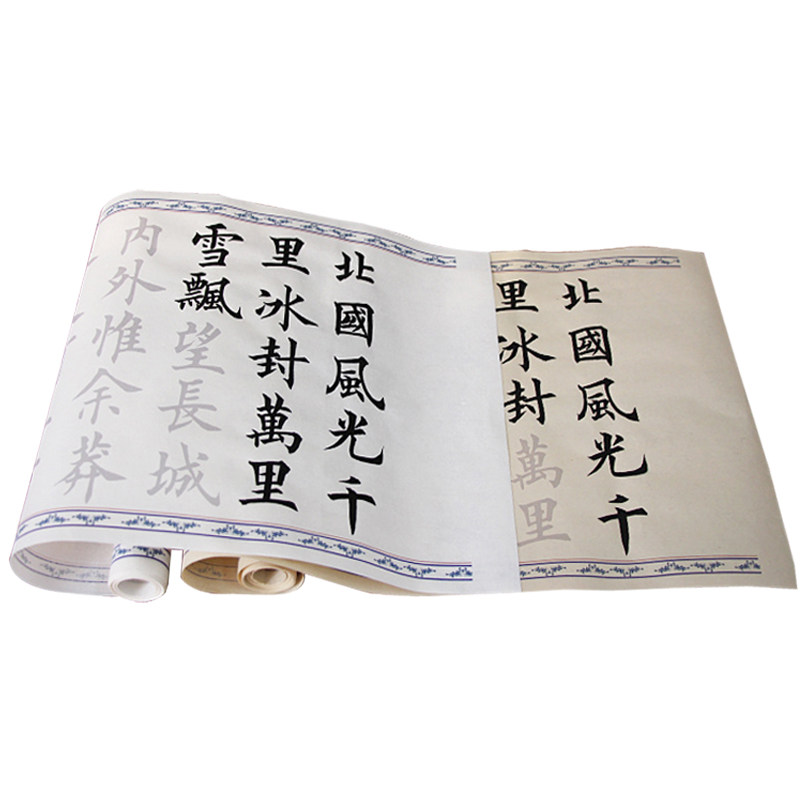 北國風光千
里冰封萬里
北國風光千
里冰封萬里
雪飄望長城
内外惟余莽